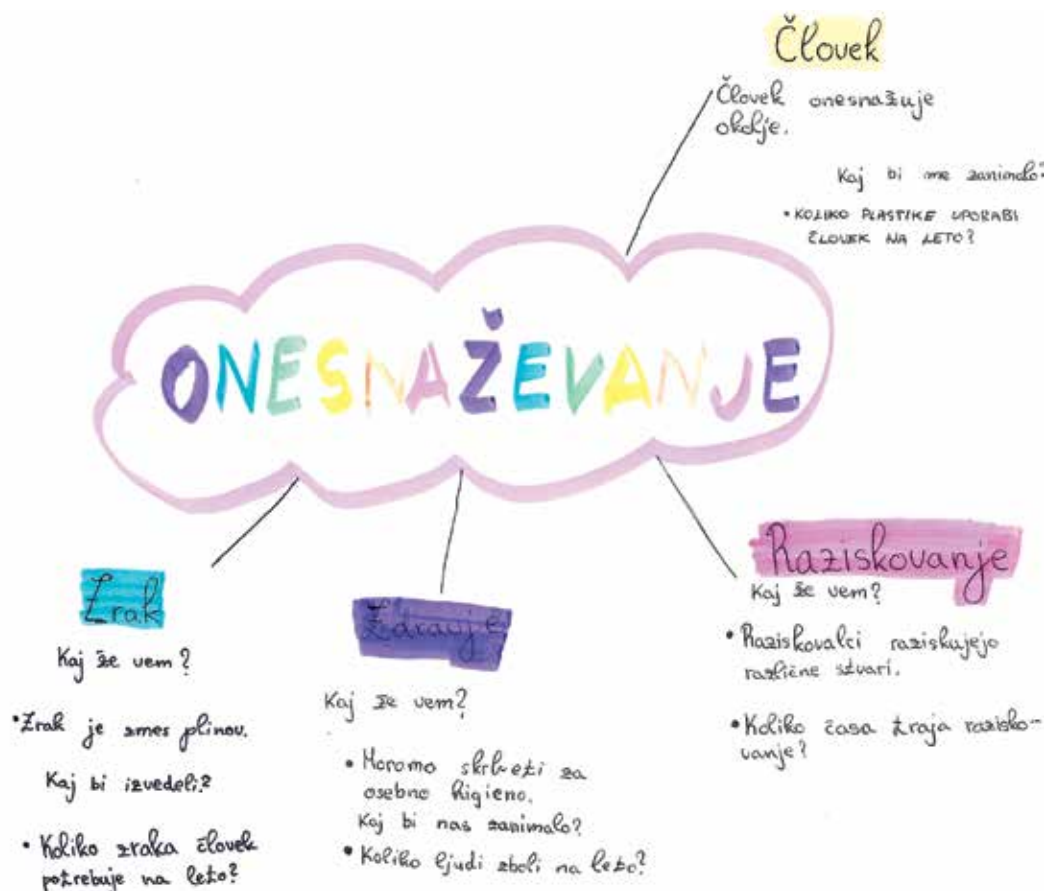 Človek
Človek onesnažuje
okolje.
Kaj bi me zanimalo?
• KOLIKO PLASTIKE UPORABI
ČLOVEK NA LETO?
ONESNAŽEVANJE
Zrak
Kaj že vem?
• Zrak je zmes plinov.
Kaj bi izvedeli?
• Koliko zraka človek
potrebuje na leto?
Zdravje
Kaj že vem?
• Moramo skrbeti za
osebno higieno.
Kaj bi nas zanimalo?
• Koliko ljudi zboli na leto?
Raziskovanje
Kaj že vem?
• Raziskovalci raziskujejo
različne stvari.
• Koliko časa traja razisko-
vanje?